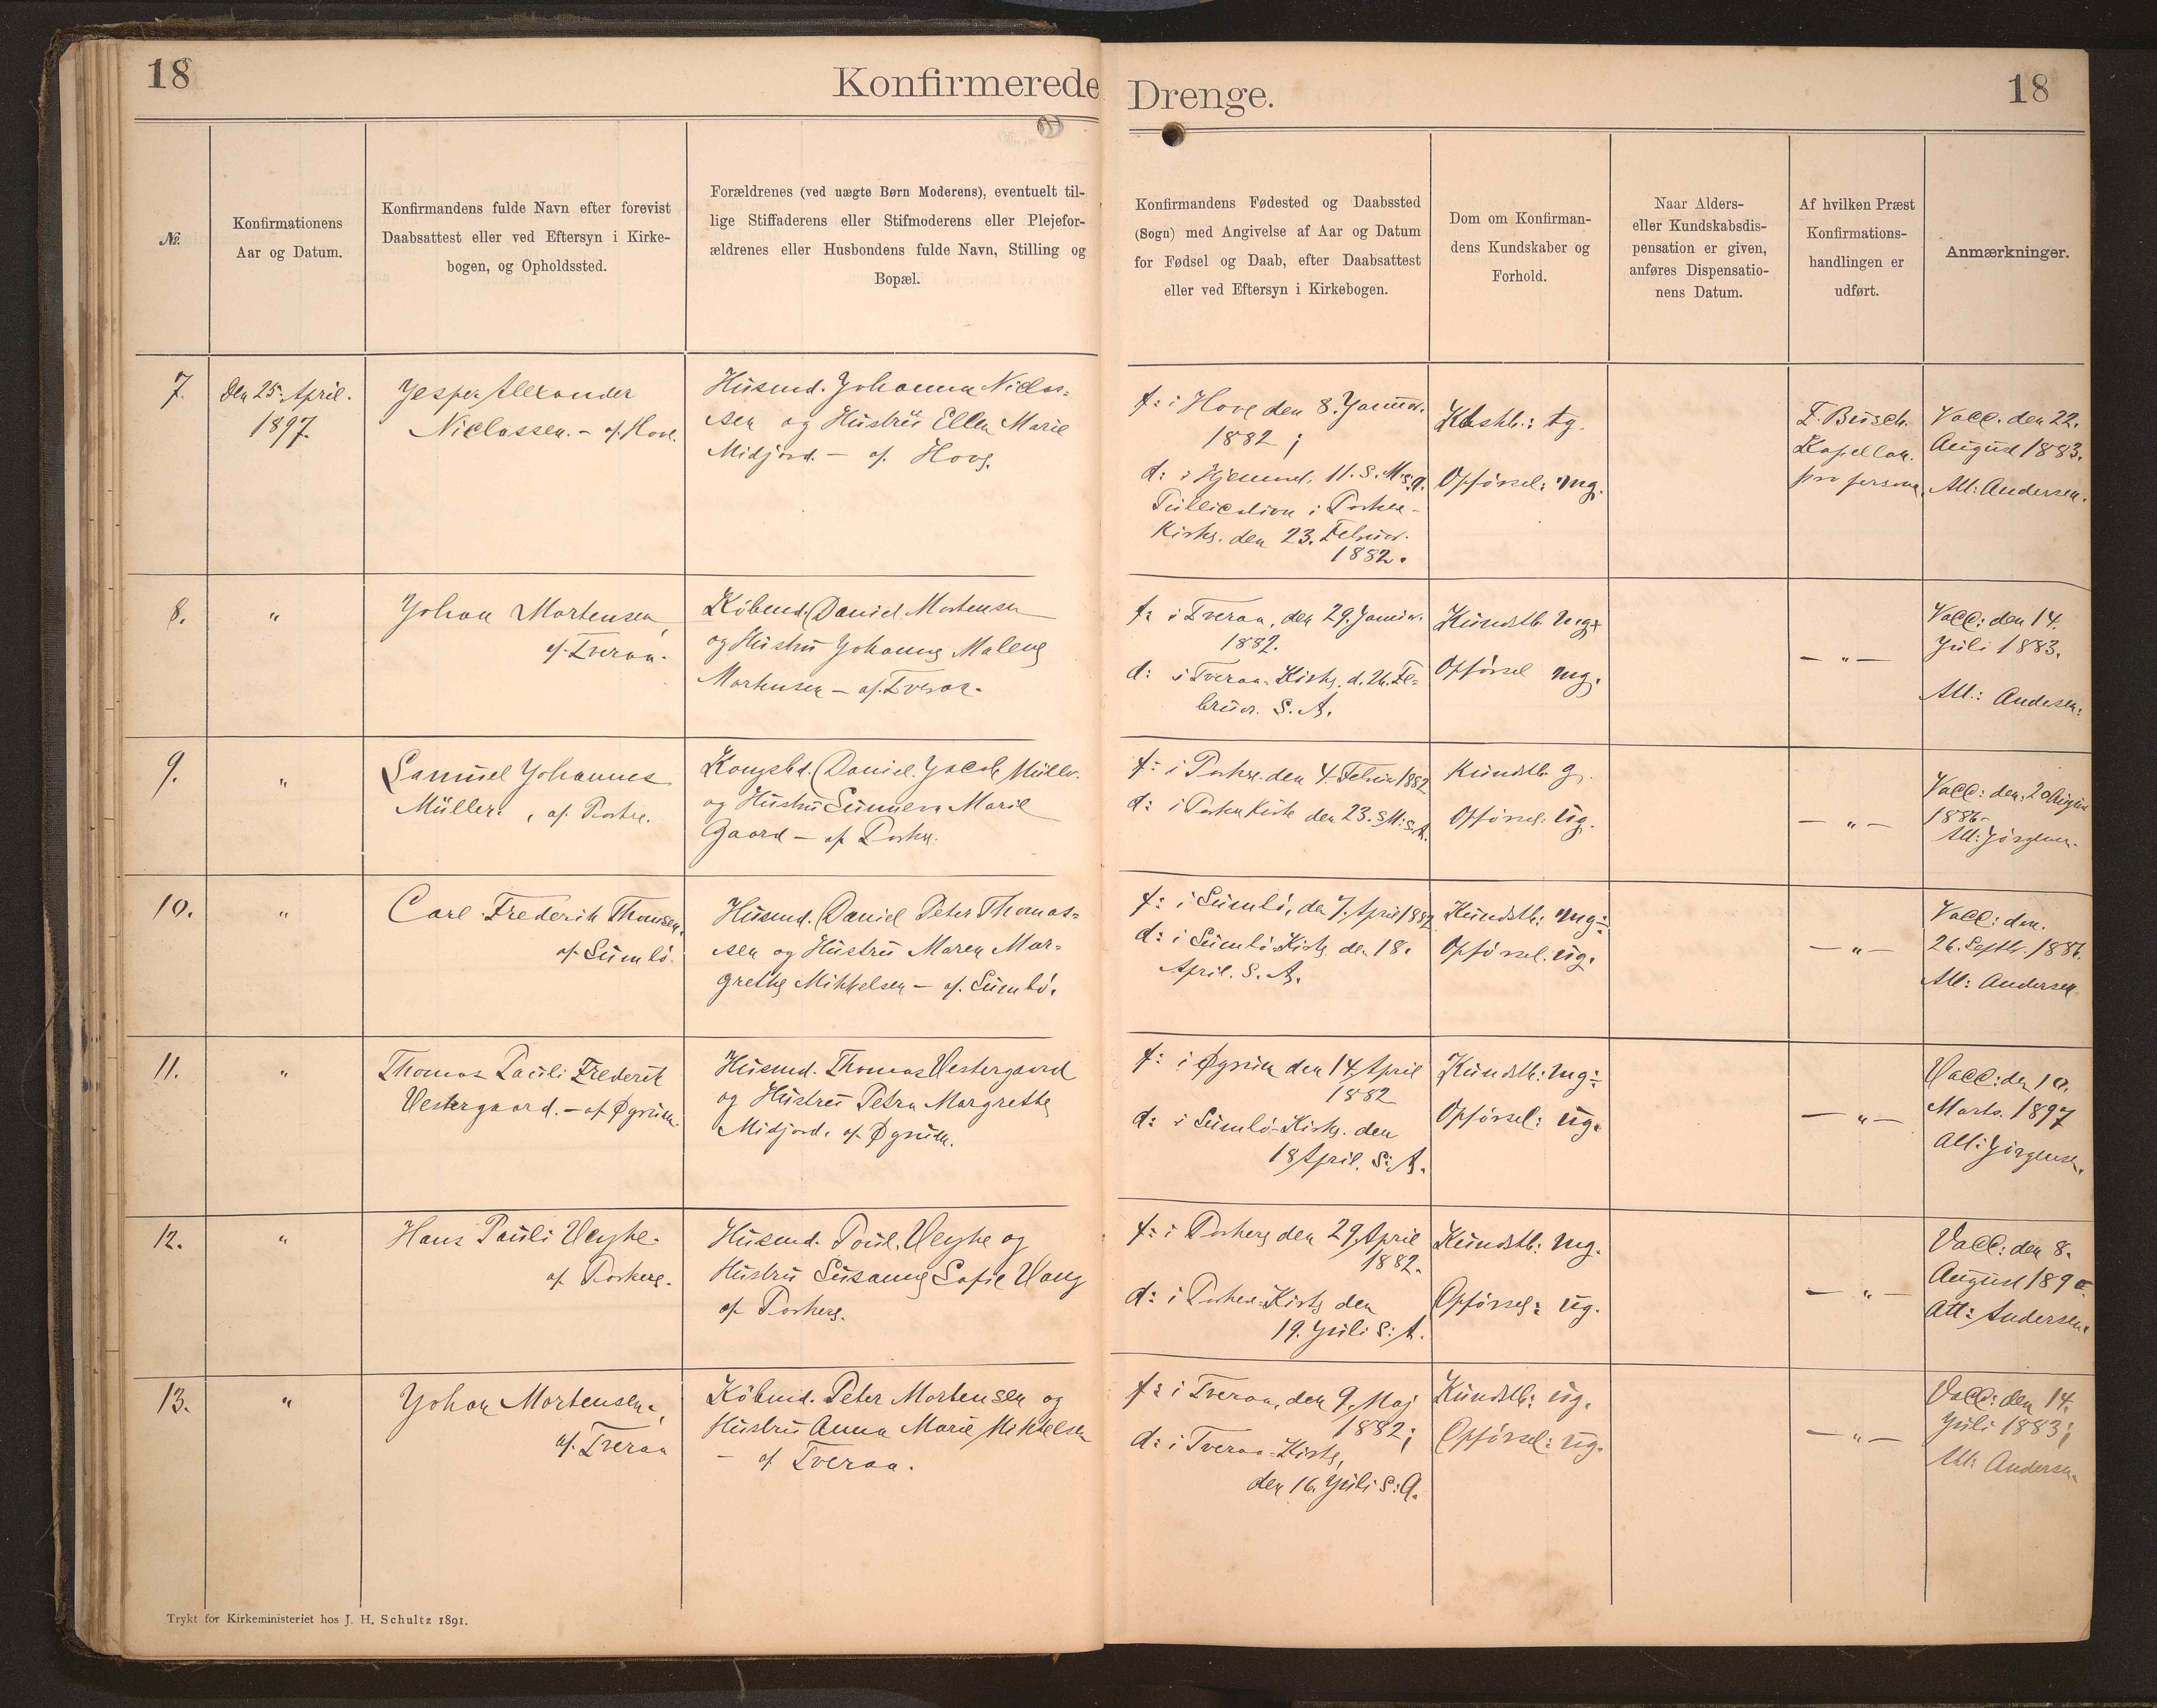 18
Konfirmerede Drenge.
18
No.
Konfirmationens
Aar og Datum.
Konfirmandens fulde Navn efter forevist
Daabsattest eller ved Eftersyn i Kirke-
bogen, og Opholdssted.
Forældrenes (ved uægte Børn Moderens), eventuelt til-
lige Stiffaderens eller Stifmoderens eller Plejefor-
ældrenes eller Husbondens fulde Navn, Stilling og
Bopæl.
Konfirmandens Fødested og Daabssted
(Sogn) med Angivelse af Aar og Datum
for Fødsel og Daab, efter Daabsattest
eller ved Eftersyn i Kirkebogen.
Dom om Konfirman-
dens Kundskaber og
Forhold.
Naar Alders-
eller Kundskabsdis-
pensation er given,
anføres Dispensatio-
nens Datum.
Af hvilken Præst
Konfirmations-
handlingen er
udført.
Anmærkninger.
7.
Den 25. April.
1897.
Jesper Alexander
Niclassen. - af Hove.
Husmd. Johannes Niclas=
sen og Hustru Ellen Marie
Midjord. - af Hove.
f: i Hove den 8. Januar.
1882;
d: i Hjemmet. 11. S. M. s. A.
Publication i Porkere-
Kirke. den 23. Februar.
1882.
Kdskb.: tg.
Opførsel: mg.
F. Busch.
Kapellan.
pro persona.
Vacc. den 22.
August 1883.
Att: Andersen.
8.
"
Johan Mortensen,
af Tveraa.
Købmd. Daniel Mortensen
og Hustru Johanne Malene
Mortensen - af Tveraa.
f: i Tveraa, den 29. Januar.
1882.
d: i Tveraa-Kirke. d. 26. Fe=
bruar. S. A.
Kundskb. mg+
Opførsel mg.
- " -
Vacc: den 14.
Juli 1883.
Att.: Andersen.
9.
"
Samuel Johannes
Müller, af Porkere.
Kongsbd. Daniel Jacob Müller.
og Hustru Sunneva Marie
Gaard - af Porkere.
f: i Porkere. den 4. Februar 1882
d: i Porkere Kirke den 23. S. M. s. A.
Kundskb. g.
Opførsel: ug.
- " -
Vacc: den 20 August
1886.
Att: Jørgensen.
10.
"
Carl Frederik Thomsen.
af Sumbø.
Husmd. Daniel Peter Thomas=
sen og Hustru Maren Mar=
grethe Mikkelsen - af Sumbø.
f: i Sumbø, den 7. April 1882
d: i Sumbø-Kirke, den 18.
April. S. A.
Kundskb: mg÷
Opførsel. ug.
- " -
Vacc: den.
26. Septbr. 1886.
Att: Andersen.
11.
"
Thomas Pauli Frederik
Vestergaard. - af Øgrum.
Husmd. Thomas Vestergaard
og Hustru Petra Margrethe
Midjord. af Øgrum.
f: i Øgrum den 14 April
1882
d: i Sumbø-Kirke. den
18 April. S: A.
Kundskb: mg÷
Opførsel: ug.
- " -
Vacc: den 10.
Marts. 1897
Att: Jørgensen.
12.
"
Hans Pauli Veyhe.
af Porkere.
Husmd. Poul Veyhe og
Hustru Susanne Sofie Vang
af Porkere.
f: i Porkere den 29. April
1882.
d: i Porkere-Kirke den
19. Juli S: A.
Kundskb: mg.
Opførsel: ug.
- " -
Vacc: den 8.
August 1890
Att: Andersen.
13.
"
Johan Mortensen.,
af Tveraa
Købmd. Peter Mortensen og
Hustru Anna Marie Mikkelsen
- af Tveraa.
f: i Tveraa, den 9. Maj
1882;
d: i Tveraa-Kirke,
den 16. Juli S: A.
Kundskb: ug.
Opførsel: ug.
- " -
Vacc: den 14.
Juli 1883;
Att: Andersen.
Trykt for Kirkeministeriet hos J. H. Schultz 1891.